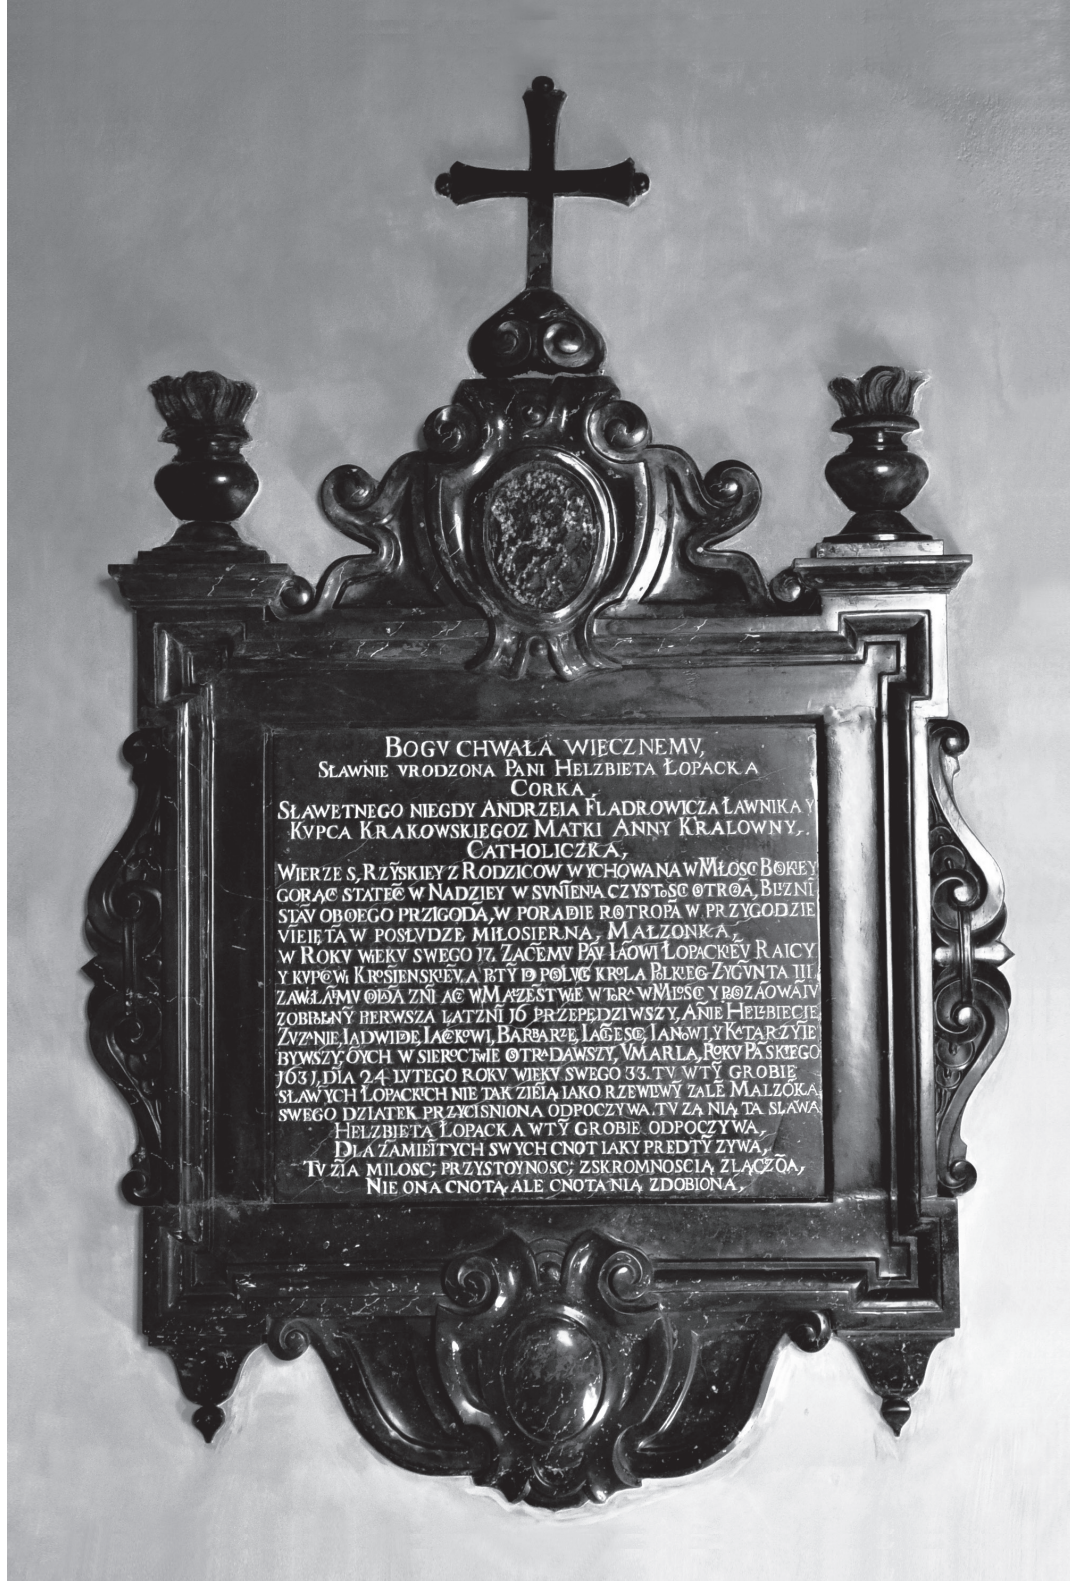 BOGV CHWAŁA WIECZNEMV,
SŁAWNIE VRODZONA PANI HELZBIETA ŁOPACKA
CORKA,
SŁAWETNEGO NIEGDY ANDRZEIA FLADROWICZA ŁAWNIKA Y
KVPCA KRAKOWSKIEGO Z MATKI ANNY KRALOWNY,
CATHOLICZKA,
WIERZE S, RZỸSKIEY Z RODZICOW WYCHOWANA W MŁOSC BOKIEY
GORĄC STATEC W NADZIEY W SVNIENIA CZYSTOSC
OBOEGO PRZIGODA, W PORADIE ROTROPA W PRZYGODZIE
VIEIĘTA W POSŁVDZE MIŁOSIERNA, MAŁZONKA,
W ROKV WIEKV SWEGO 17. ZACEMV PAV IAOWI ŁOPACKIEV RAICY
Y KVPCOWI KROSIENSKIEV, KROLA POLKIEG ZYGVNTA III.
ZNI W MALZESTWIE W MŁOSC Y
PIERWSZA LAT ZNI 16 PRZEPĘDZIWSZY, ANIE HELZBIECIE,
ZVZANIE, IADWIDE, IACKOWI, BARBARZE, IANOWI, Y KATARZYIE
BYWSZY, OYCH W SIEROCTWIE OSTRADAWSZY, VMARLA, ROKV PASKIEGO
1631, DIA 24 LVTEGO ROKV WIEKV SWEGO 33. TV W TỸ GROBIE
SŁAWYCH ŁOPACKICH NIE TAK ZIEIĄ IAKO RZEWLIWỸ ZALE MALZOKA,
SWEGO DZIATEK PRZYCISNIONA ODPOCZYWA. TV ZĄ NIĄ TA SŁAWA
HELZBIETA ŁOPACKA W TỸ GROBIE ODPOCZYWA,
DLA ZAMIEITYCH SWYCH CNOT IAKY PREDTỸ ZYWA,
TV ZIA MILOSC; PRZYSTOYNOSC; ZSKROMNOSCIĄ ZLĄCZOA,
NIE ONA CNOTĄ ALE CNOTA NIĄ ZDOBIONA,